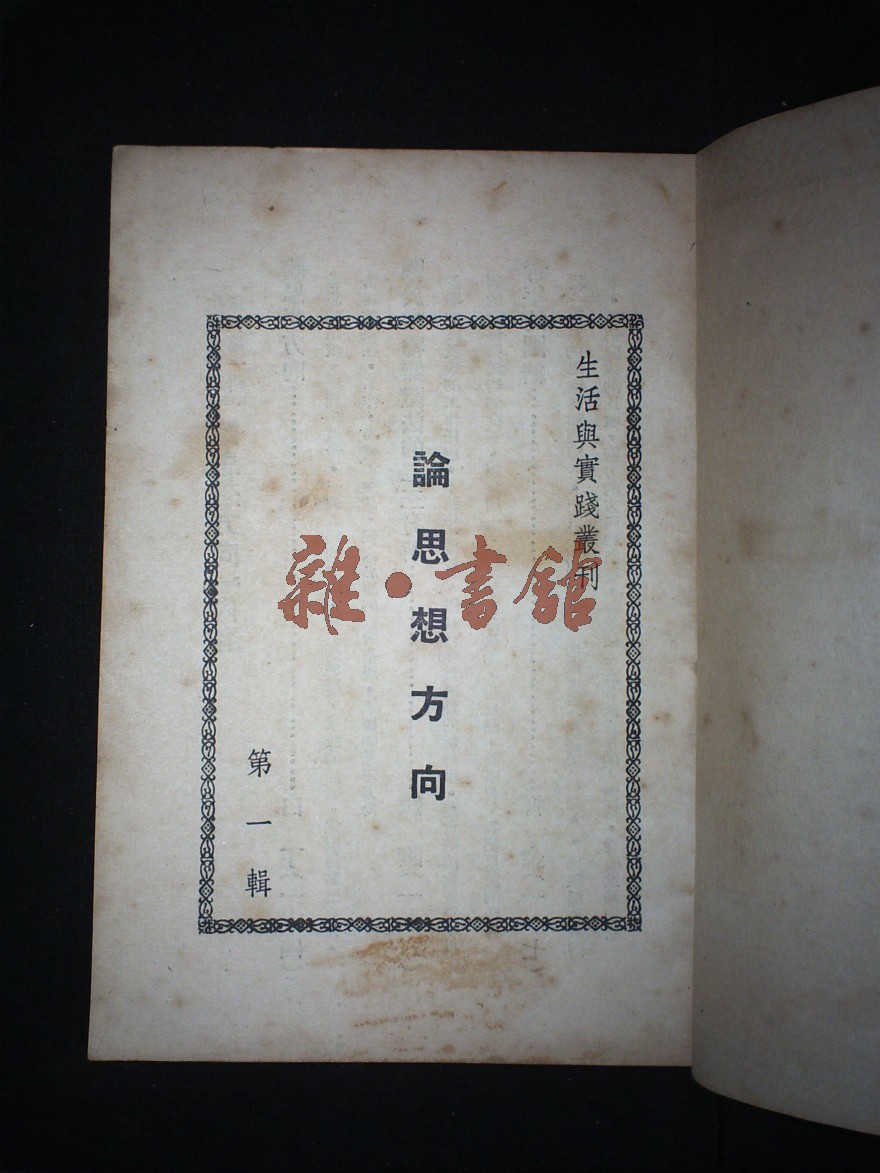 生活與實踐叢刊
論思想方向
第一輯
雜·書館